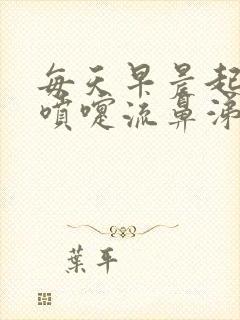 每天早晨起
噴嚏流鼻涕
葉平